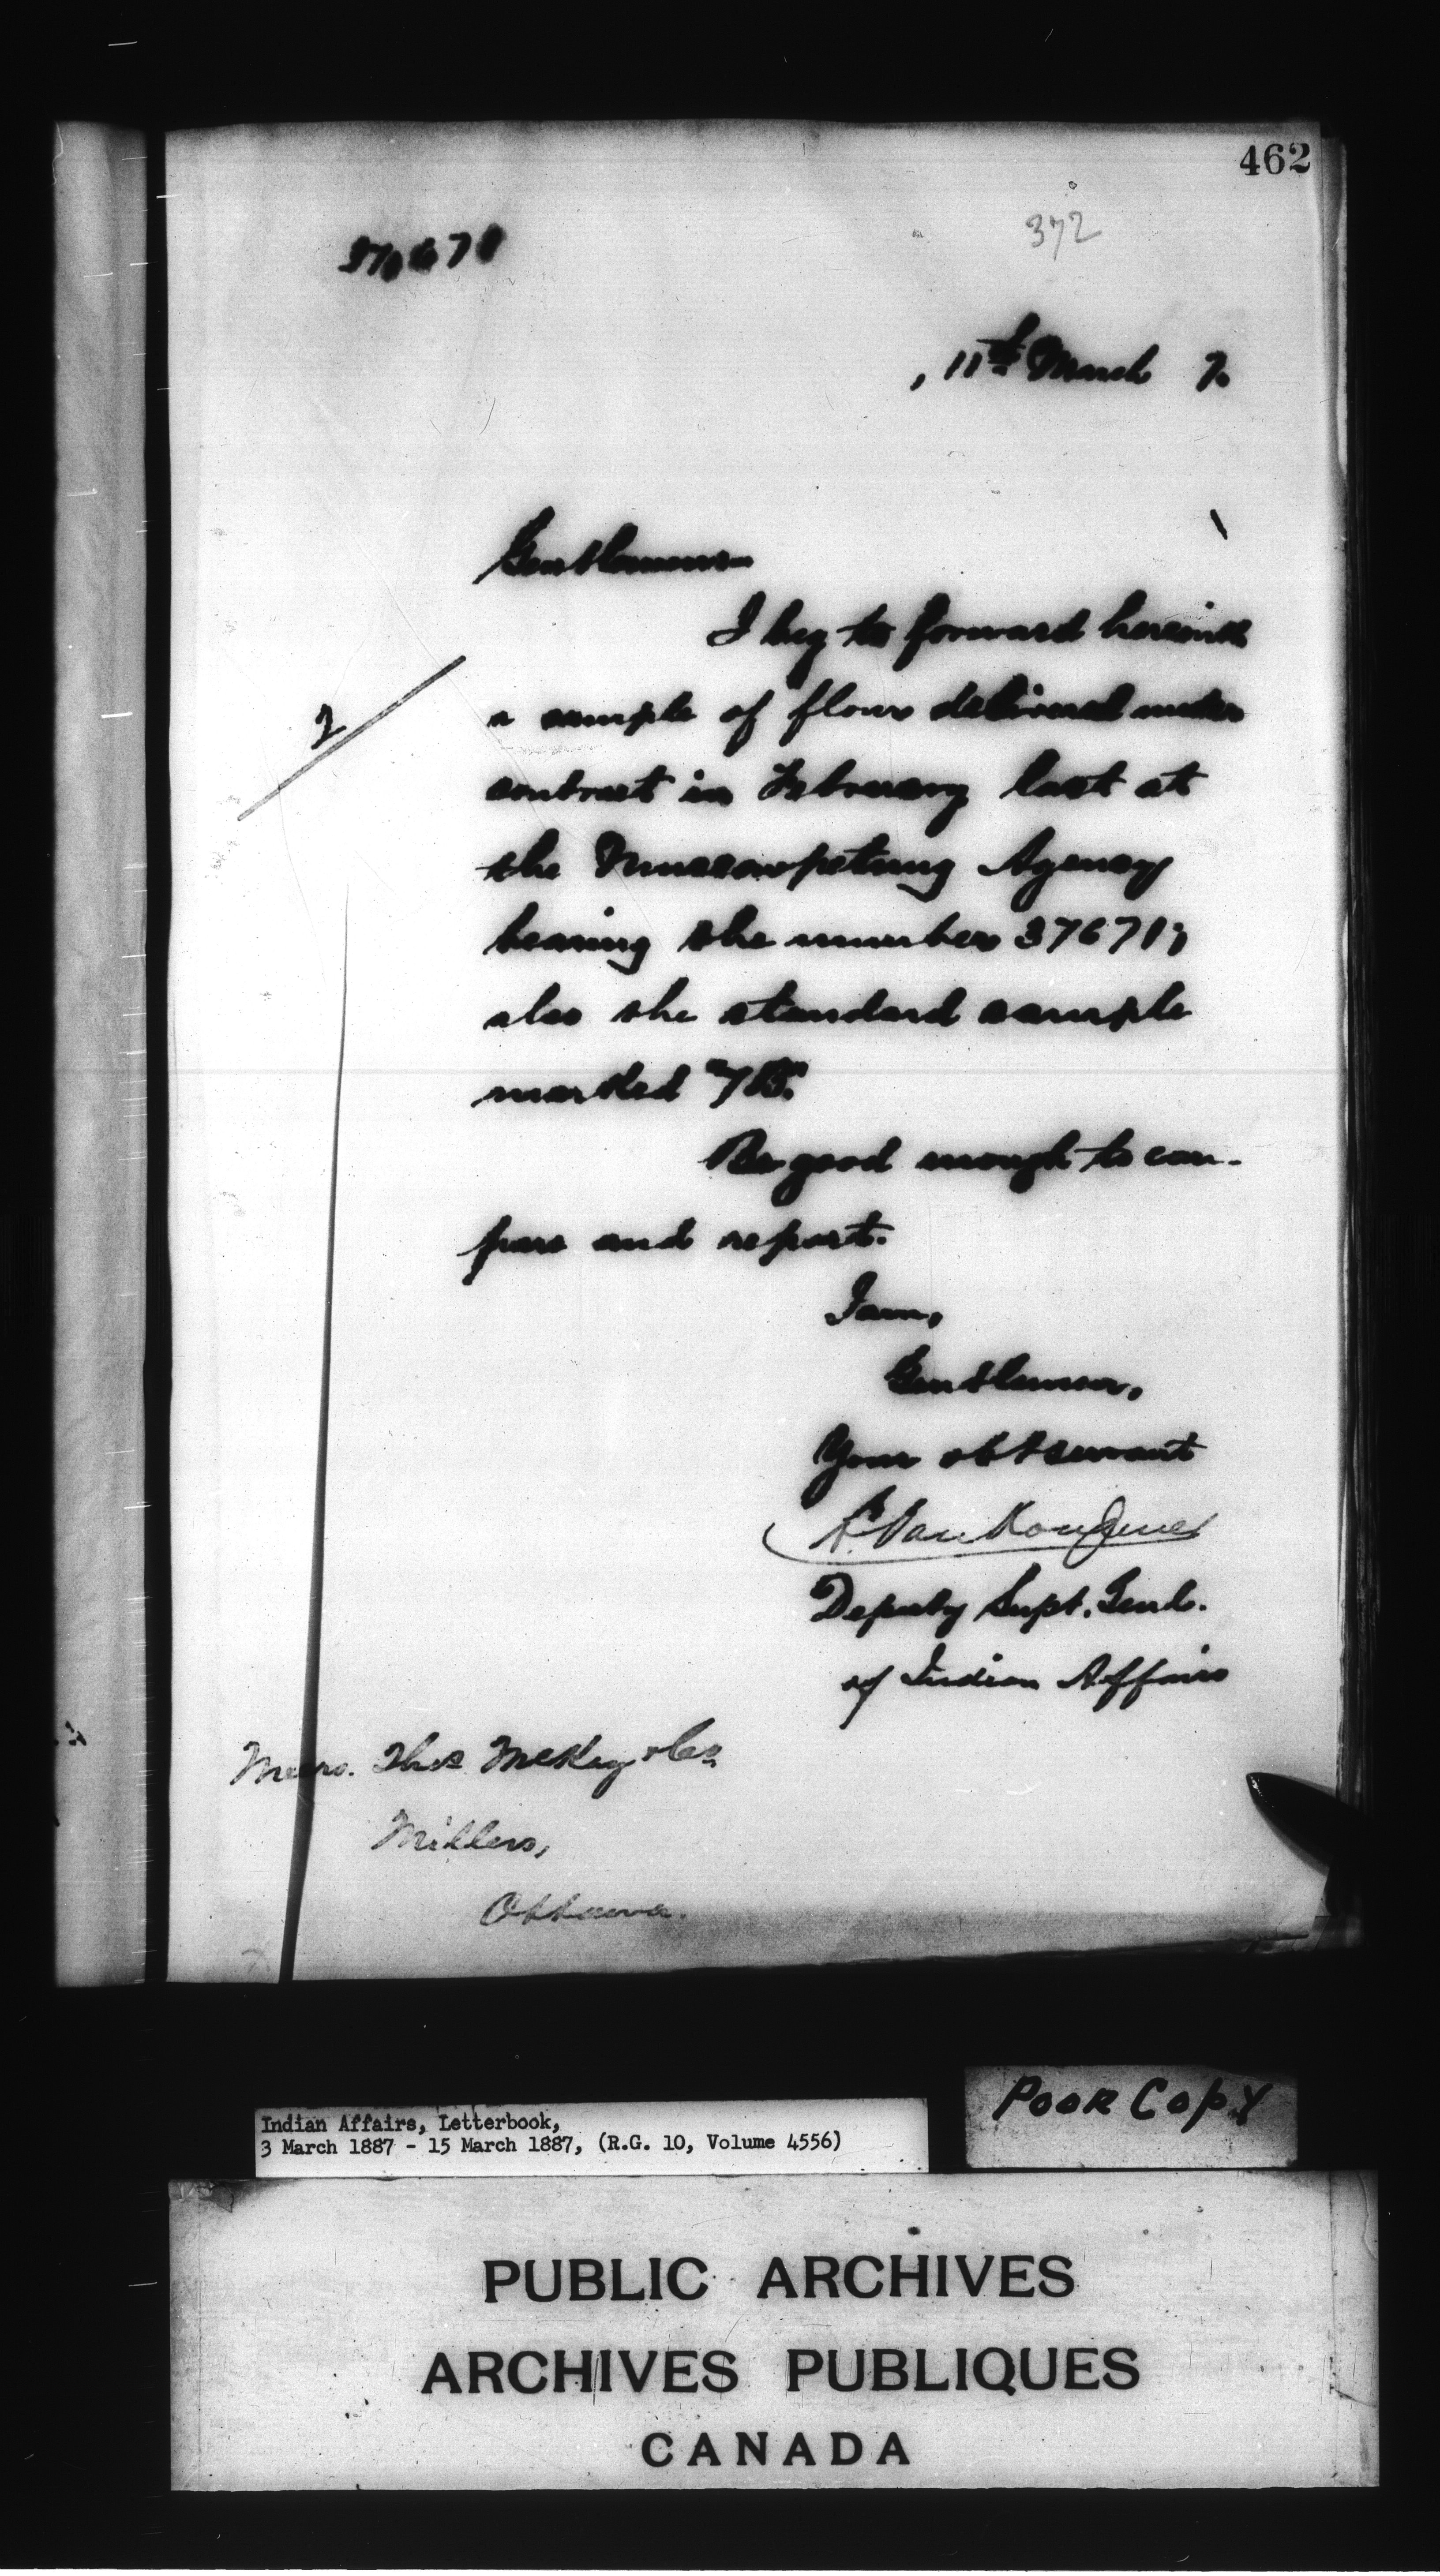 462
372
37671
, 11th March 7.
Gentlemen
I beg to forward herewith
2
a sample of flour delivered under
contract in February last at
the Muscowpetung Agency
bearing the number 37671;
also the standard sample
marked "7B."
Be good enough to com-
pare and report.
I am,
Gentlemen,
Your obt servant
L. VanKoughnet
Deputy Supt. Genl.
of Indian Affairs
Messrs. Thos McKay & Co.
Millers,
Ottawa.
POOR COPY
Indian Affairs, Letterbook,
3 March 1887 - 15 March 1887, (R.G. 10, Volume 4556)
PUBLIC ARCHIVES
ARCHIVES PUBLIQUES
CANADA